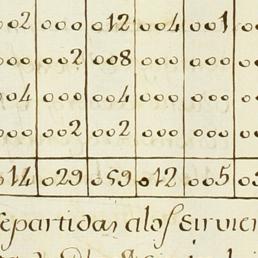 002 000 012 004 001
000 002 008 000 000
004 000 004 000 000
000 002 002 000 000
014 029 059 012 005
repartidas alos sirvien